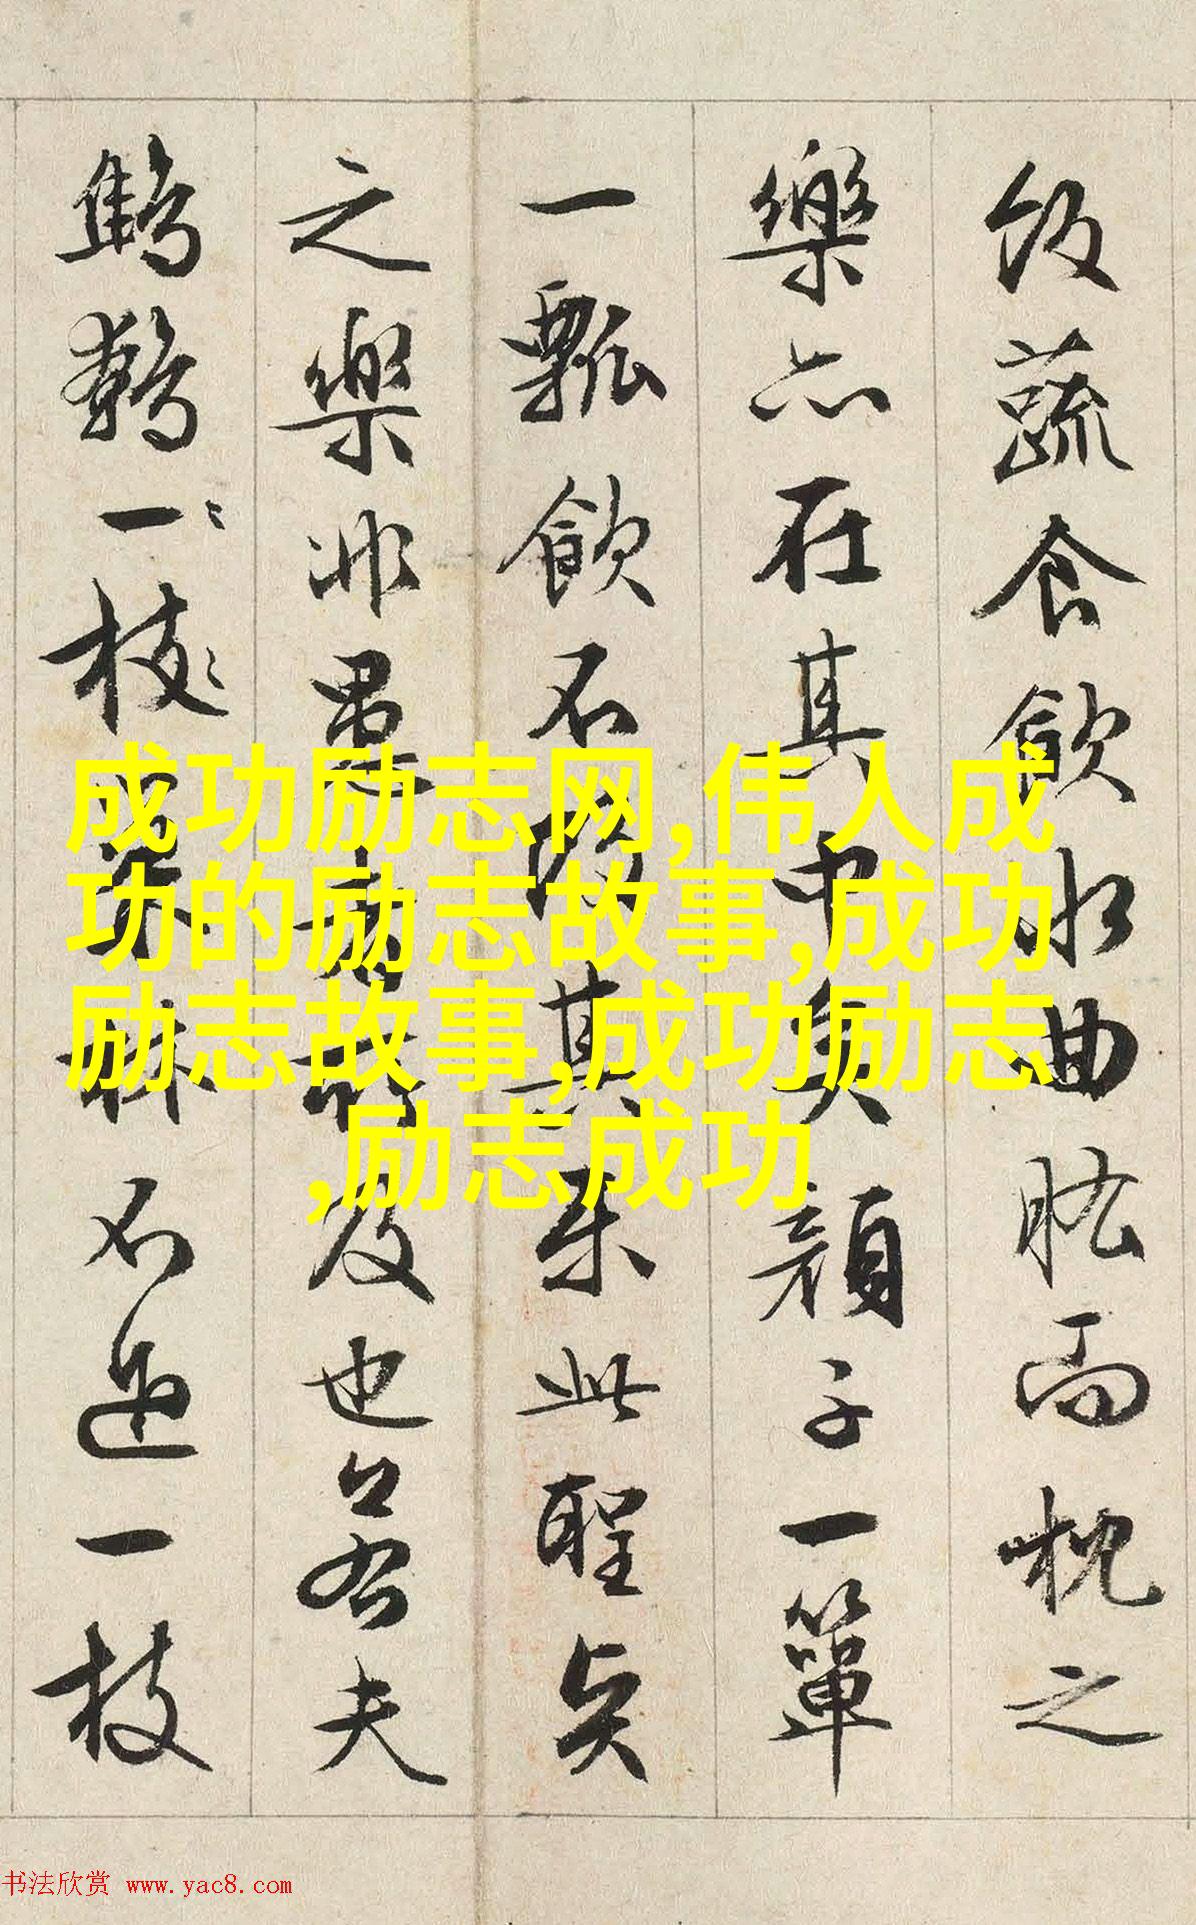 飯蔬食飲水曲肱而枕之
樂亦在其中矣顏子一簞
一瓢飲不改其樂此聖賢
之樂非愚者所及也若夫
鷦鷯一枝巢林不過一枝
成功励志网,伟人成
功的励志故事,成功
励志故事,成功励志
,励志成功
书法欣赏 www.yac8.com